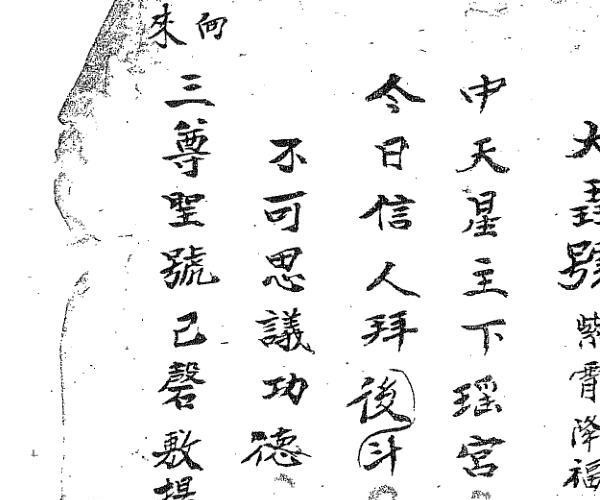 大聖號 紫霄降福
中天星主下瑶宮
今日信人拜後斗
不可思議功德
向來三尊聖號已磬敷揚